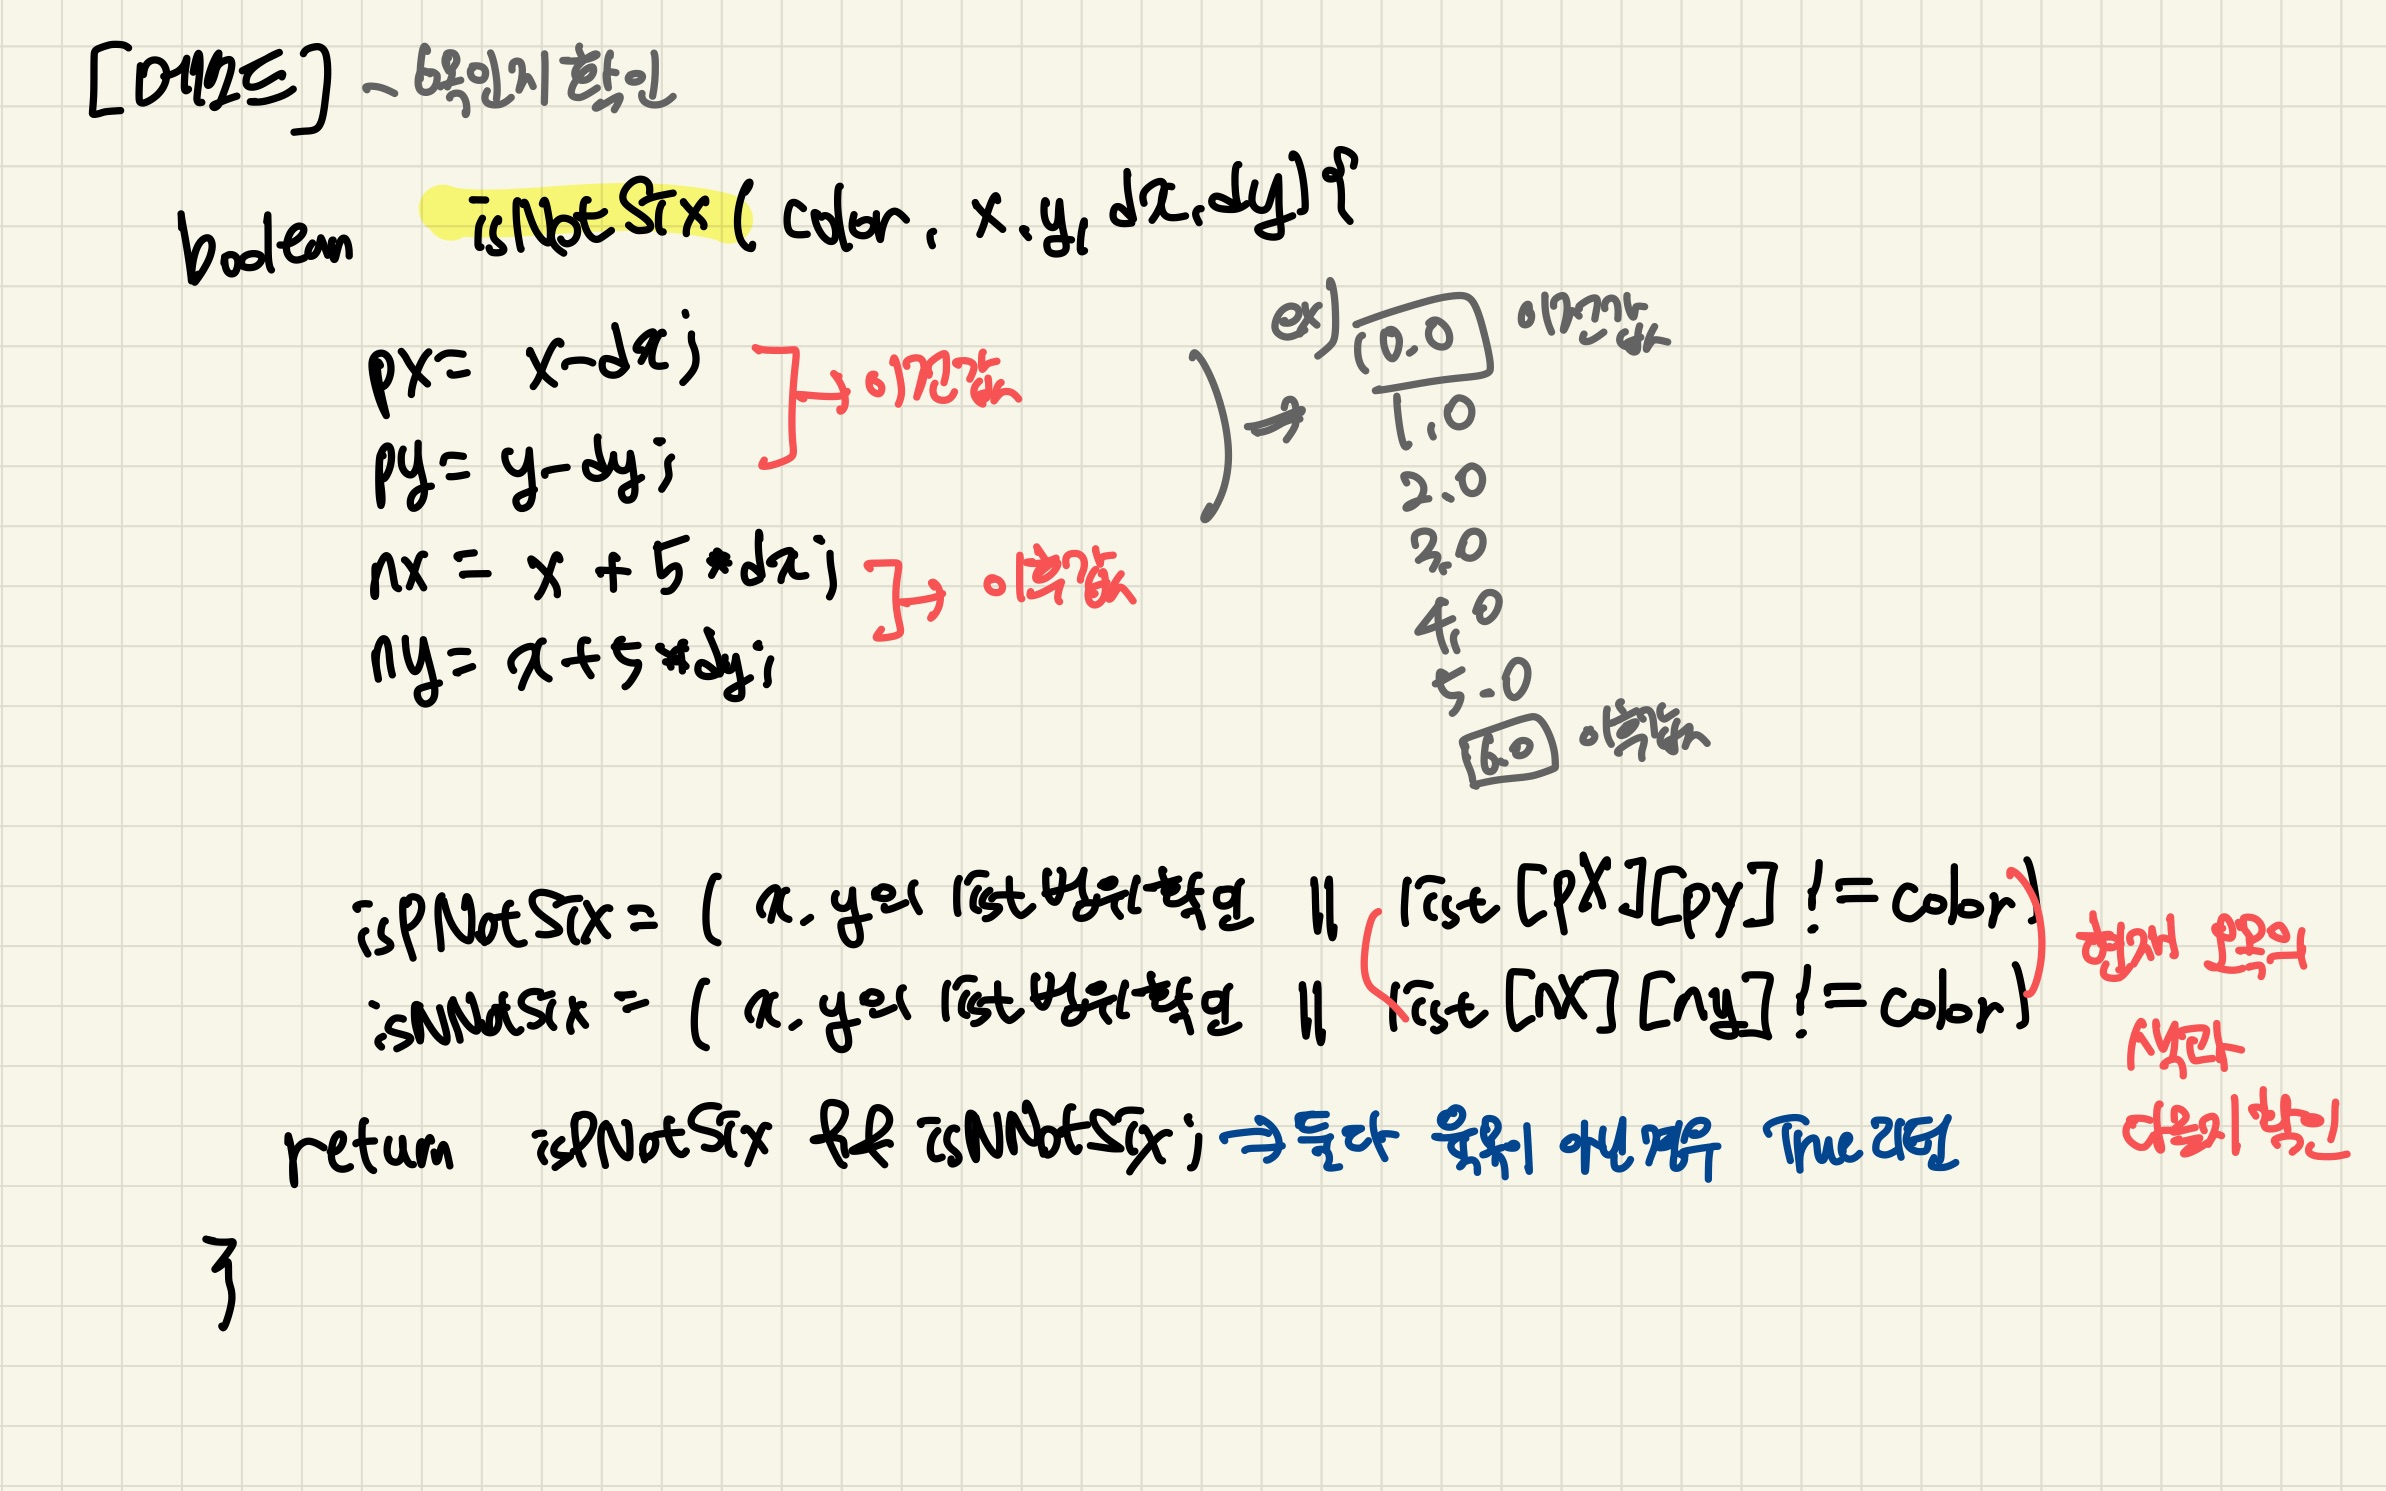 [메서드] - 6목인지 확인
boolean isNotSix( color, x,y, dx,dy){
px= x-dx;
py= y-dy;
→이전값
nx = x + 5 *dx;
ny= x+5*dy;
→ 이후값
ex) (0.0 이전값
1.0
2.0
3.0
4.0
5.0
6.0 이후값
isPNotSix= ( x,y의 list || list [pX][py] != color)
isNNotSix = ( x,y의 list || list [nX] [ny] != color)
현재 오목의
색과
다른지 확인
return isPNotSix && isNNotSix; → 둘다 육목이 아닌 경우 True 리턴
}